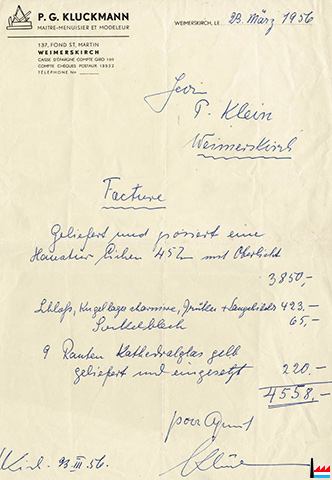 P. G. KLUCKMANN
MAITRE-MENUISIER ET MODELEUR
137, FOND ST. MARTIN
WEIMERSKIRCH
CAISSE D'ÉPARGNE COMPTE GIRO 100
COMPTE CHÈQUES POSTAUX 13932
TÉLÉPHONE No
WEIMERSKIRCH, LE 23. März 1956
Herrn
P. Klein
Weimerskirch
Facture
Geliefert und plossiert eine
Haustür Eichen 45% mit Oberlicht
3850,-
Schloß, Kugellager charniere, Drücker + Langschilder 423.-
Sockelblech 65,-
9 Rauten Kathedralglas gelb
geliefert und eingesetzt 220.-
4558,-
pour Acquit
Kirch. 23. III. 56.